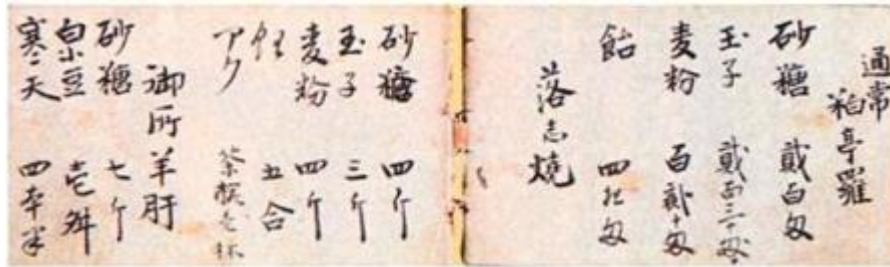 通常
粕亭羅
砂糖 貳百匁
玉子 貳百三十匁
麦粉 百貳十匁
飴 四拾匁
落し焼
砂糖 四斤
玉子 三斤
麦粉 四斤
飴 五合
アク 茶椀壱杯
御所羊肝
砂糖 七斤
小豆 壱舛
寒天 四本半